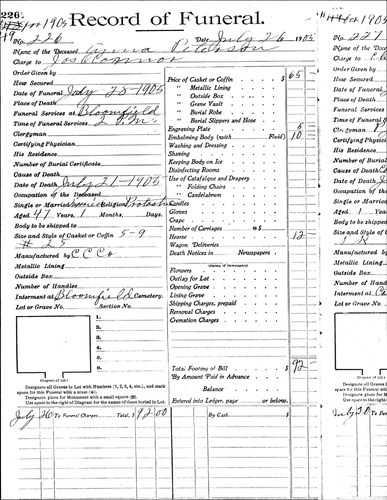 226
for 1905
Record of Funeral.
No. 226 Date July 26 1905
Name of the Deceased Anna Peterson
Charge to Jos O'Connor
Order Given by
Charge to
Date of Funeral July 23-1905
Place of Death
Funeral Services at Bloomfield
Time of Funeral Services 2 P.M.
Clergyman
Certifying Physician
His Residence
Number of Burial Certificate
Cause of Death
Date of Death July 21-1905
Occupation of the Deceased
Single or Married Religion
Aged 47 Years, 1 Months, Days
Body to be shipped to
Size and Style of Casket or Coffin 5-9
# 25
Manufactured by C C Co
Metallic Lining
Outside Box
Number of Handles
Interment at Bloomfield Cemetery.
Lot or Grave No. Section No.
1.
2.
3.
4.
5.
6.
(Diagram of Lot.)
Designate all Graves in Lot with Numbers (1, 2, 3, 4, etc.), and mark
space for this Funeral with a cross
Designate place for Monument with a small square
Use space in the right of Diagram for the names of those buried in Lot.
Price of Casket or Coffin $ 65
" Metallic Lining
" Outside Box
" Grave Vault
" Burial Robe
" Burial Slippers and Hose
Engraving Plate 5
Embalming Body (with Fluid) 10
Washing and Dressing
Shaving
Keeping Body on Ice
Disinfecting Rooms
Use of Catafalque and Drapery
" Folding Chairs
" Candelabrum
Candles
Gloves
Crape
Number of Carriages @ $
Hearse 12
Wagon Deliveries
Death Notices in Newspapers
(Names of Newspapers)
Flowers
Outlay for Lot
Opening Grave
Lining Grave
Shipping Charges, prepaid
Removal Charges
Cremation Charges
Total Footing of Bill $ 92
By Amount Paid in Advance
Balance
Entered into Ledger, page or below.
July 26 To Funeral Charges, Total, $ 92 00 By Cash $
for 1905
No. 227
Name of the
Charge to
Order Given by
Date of Funeral
Place of Death
Funeral Services
Time of Funeral
Clergyman
Certifying Physician
His Residence
Number of Burial
Cause of Death
Date of Death
Occupation of
Single or Married
Aged 1
Body to be shipped
Size and Style of
Manufactured by
Metallic Lining
Outside Box
Number of Handles
Interment at
Lot or Grave No.
(Diagram of Lot.)
Designate all
space for this
Designate place
Use space in the
July 30 To Fun